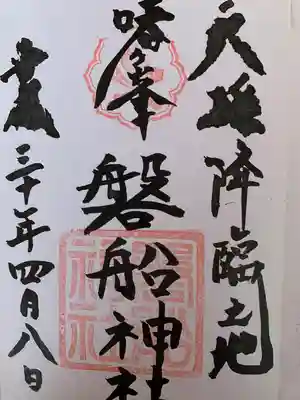 天孫降臨之地
哮ヶ峯
磐船神社
平成三十年四月八日